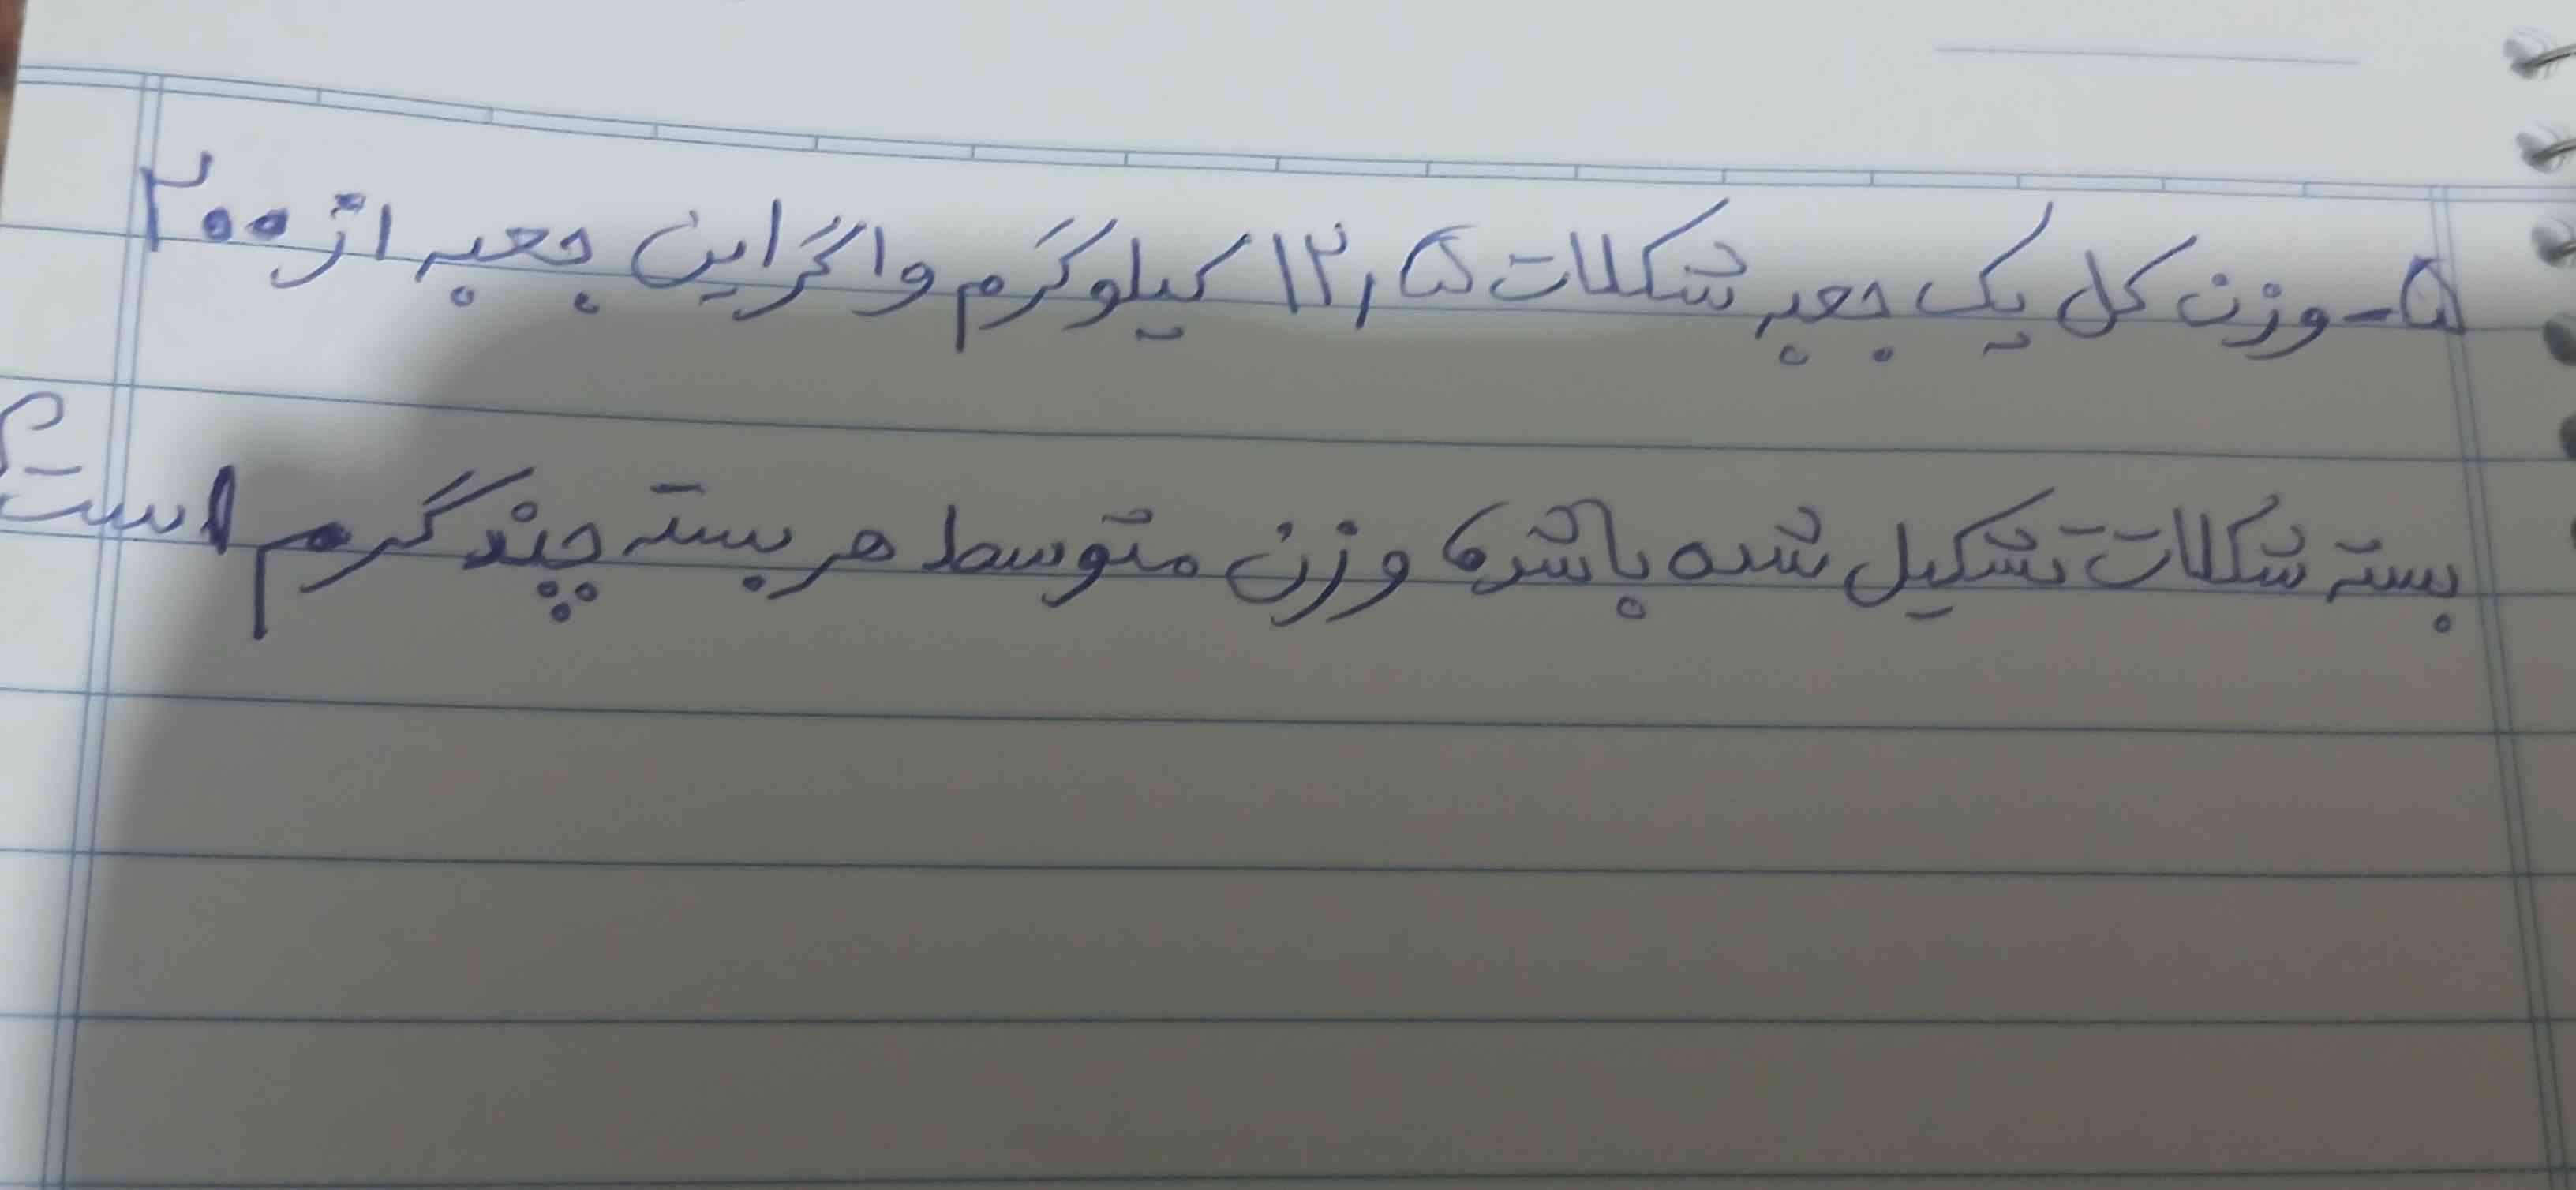 ۵-وزن کل یک جعبه شکلات ۱۲٫۵ کیلوگرم و اگر این جعبه از ۲۰۰
بسته شکلات تشکیل شده باشد، وزن متوسط هر بسته چند گرم است؟